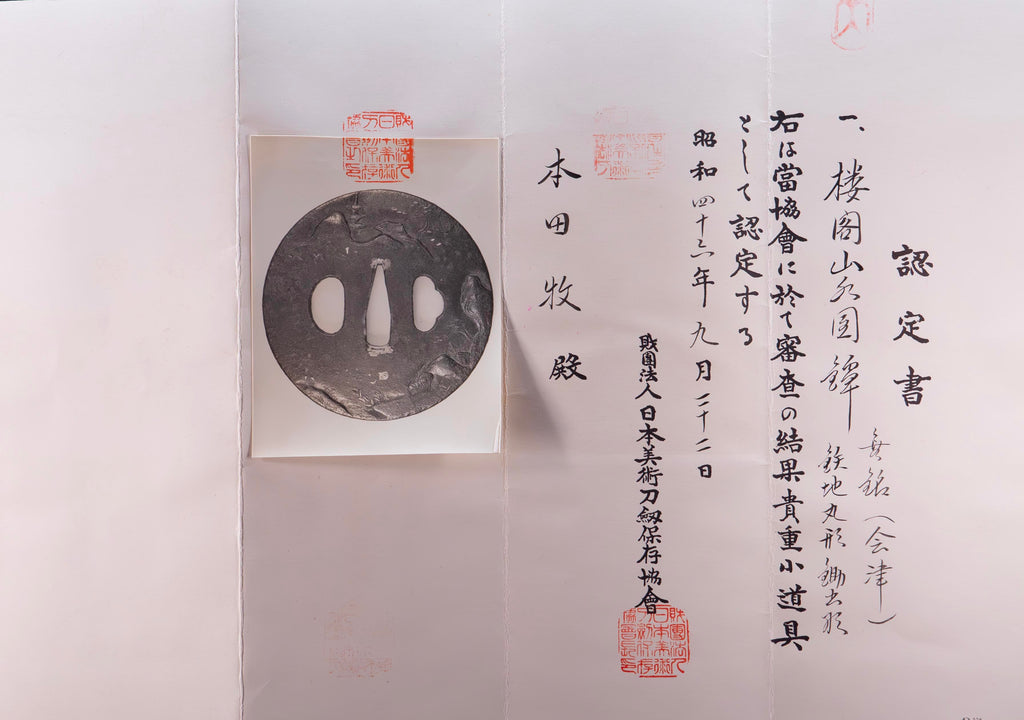 認定書
一、楼閣山水図鐔 無銘（会津）
鉄地丸形鋤出彫
右は當協會に於て審査の結果貴重小道具
として認定する
昭和四十三年九月二十二日
財團法人日本美術刀劔保存協會
本田牧殿